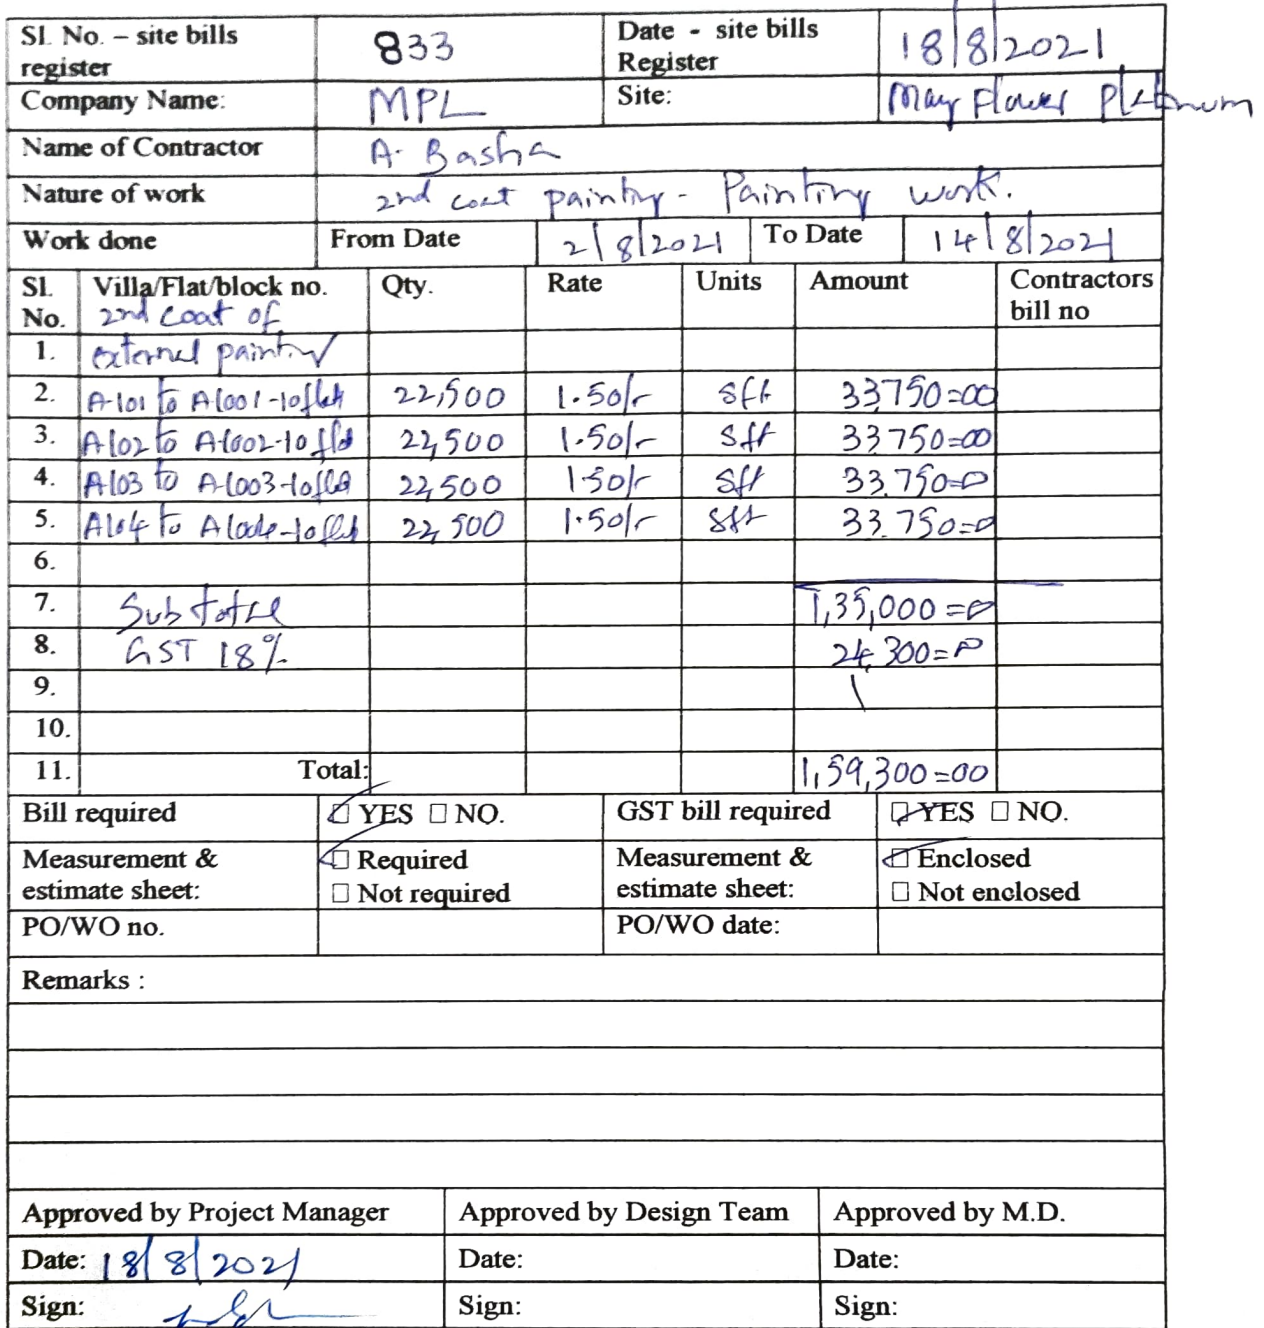 Sl. No. – site bills register 833 Date - site bills Register 18/8/2021
Company Name: MPL Site: May Flower Platinum
Name of Contractor A. Basha
Nature of work 2nd coat painting - Painting work.
Work done From Date 2/8/2021 To Date 14/8/2021
Sl. No. Villa/Flat/block no. Qty. Rate Units Amount Contractors bill no
2nd coat of
1. external painting
2. A-101 to A1001-10flat 22,500 1.50/- sft 33,750=00
3. A102 to A-1002-10 flat 22,500 1.50/- sft 33,750=00
4. A103 to A-1003-10flat 22,500 1.50/- sft 33,750=00
5. A104 to A1004-10flat 22,500 1.50/- sft 33,750=00
6.
7. Sub total 1,35,000=00
8. GST 18% 24,300=00
9.
10.
11. Total: 1,59,300=00
Bill required ☑ YES □ NO. GST bill required ☑ YES □ NO.
Measurement & estimate sheet: ☑ Required Measurement & estimate sheet: ☑ Enclosed
□ Not required □ Not enclosed
PO/WO no. PO/WO date:
Remarks :
Approved by Project Manager Approved by Design Team Approved by M.D.
Date: 18/8/2021 Date: Date:
Sign: Sign: Sign: